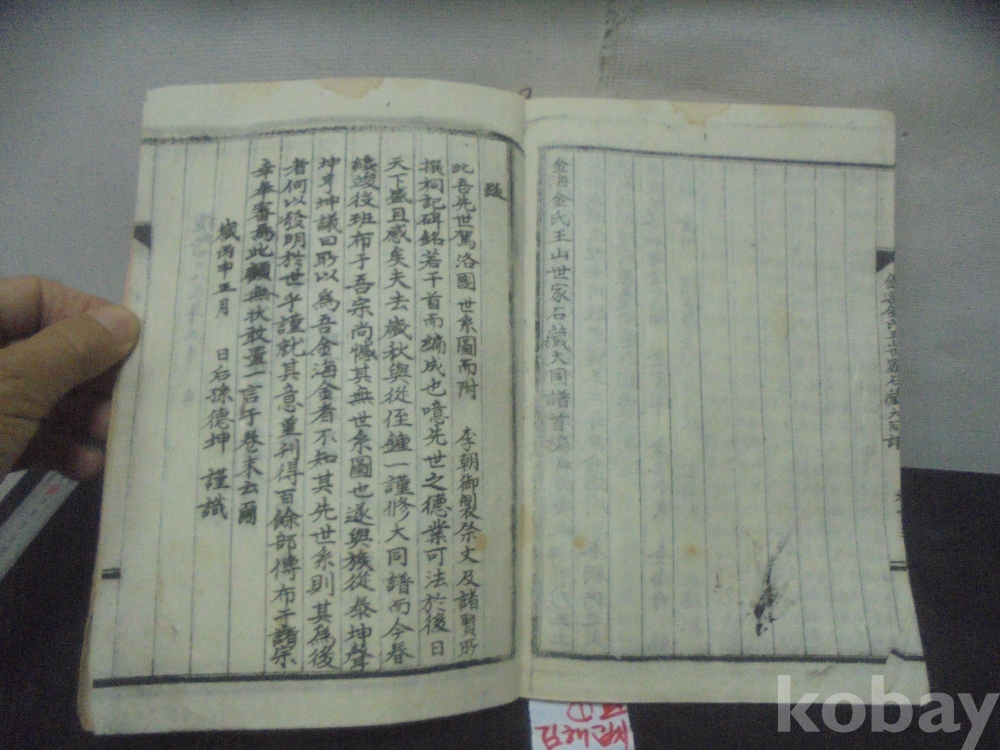 金海金氏王山世家石藏大同譜首編
跋
此吾先世駕洛國世系圖而附 李朝御製祭文及諸賢所
撰祠記碑銘若干首而編成也噫先世之德業可法於後日
天下盛且感矣夫去歲秋與從侄鍾一謹修大同譜而今春
繞竣役班布于吾宗尚憾其無世系圖也遂與族從泰坤聲
坤亨坤議曰所以為吾金海金者不知其先世系則其為後
者何以發明於世乎謹就其意重刊得百餘部傳布于諸宗
幸奉審為此顧無狀敢畫一言于卷末云爾
歲丙申五月 日后孫德坤 謹識
金海金氏王山世家石藏大同譜
김해김씨
kobay